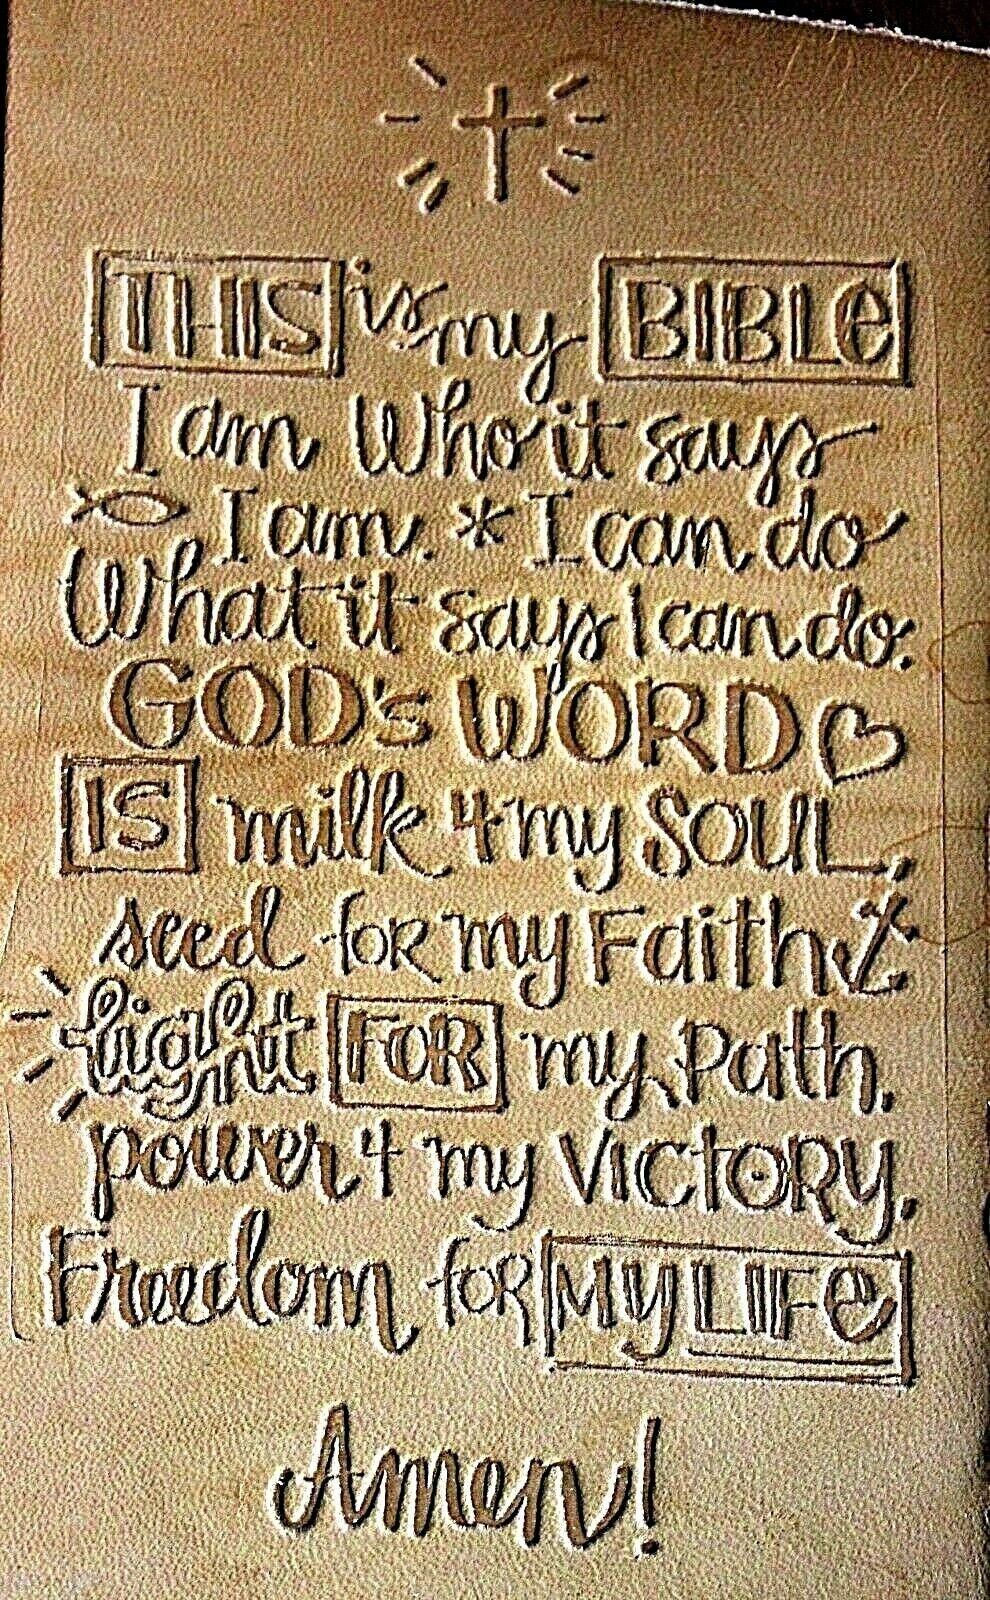 THIS is my BIBLe
I am Who it says
I am. * I can do
What it says I can do.
GOD's WORD
IS milk 4 my SOUL,
seed for my Faith
light FOR my Path.
power 4 my VictORy.
Freedom foR My LIFe
Amen!